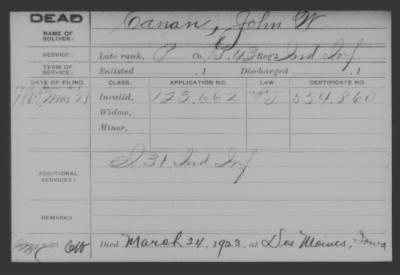 DEAD
NAME OF SOLDIER:
Canan, John W
SERVICE:
Late rank, P Co G, 43 Reg't Ind Inf
TERM OF SERVICE:
Enlisted , 1 Discharged , 1
DATE OF FILING. CLASS. APPLICATION NO. LAW. CERTIFICATE NO.
Invalid, 123.662 554.860
Widow,
Minor,
ADDITIONAL SERVICES:
I 31 Ind Inf
REMARKS:
Died March 24, 1923, at Des Moines, Iowa